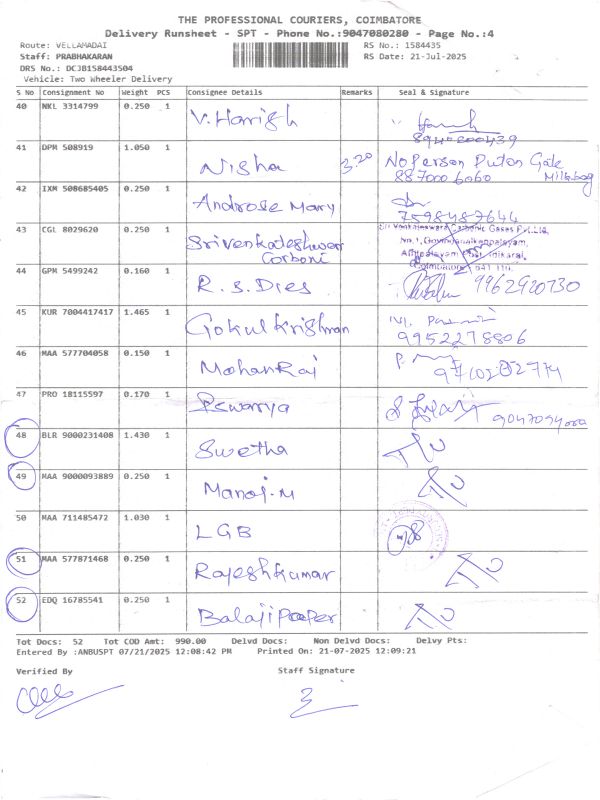 THE PROFESSIONAL COURIERS, COIMBATORE
Delivery Runsheet - SPT - Phone No.:9047080280 - Page No.:4
Route: VELLAMADAI RS No.: 1584435
Staff: PRABHAKARAN RS Date: 21-Jul-2025
DRS No.: DCJB158443504
Vehicle: Two Wheeler Delivery
S No Consignment No Weight PCS Consignee Details Remarks Seal & Signature
40 NKL 3314799 0.250 1 V. Harish
8940200439
41 DPM 508919 1.050 1 Nisha 3.20 No Person Put on Gate
887000 6060 Milk bag
42 IXM 508685405 0.250 1 Androse Mary
7598487644
43 CGL 8029620 0.250 1 Srivenkateshwar
Corboni
Sri Venkateswara Carbonic Gases Pvt.Ltd,
44 GPM 5499242 0.160 1 R.S. Dies 9962920730
45 KUR 7004417417 1.465 1 Gokul Krishnan
9952278806
46 MAA 577704058 0.150 1 Mohan Raj
47 PRO 18115597 0.170 1
48 BLR 9000231408 1.430 1 Swetha
49 MAA 9000093889 0.250 1 Manoj.M
50 MAA 711485472 1.030 1 LGB
51 MAA 577871468 0.250 1 Rajeshkumar
52 EDQ 16785541 0.250 1 Balaji Paper
Tot Docs: 52 Tot COD Amt: 990.00 Delvd Docs: Non Delvd Docs: Delvy Pts:
Entered By :ANBUSPT 07/21/2025 12:08:42 PM Printed On: 21-07-2025 12:09:21
Verified By Staff Signature